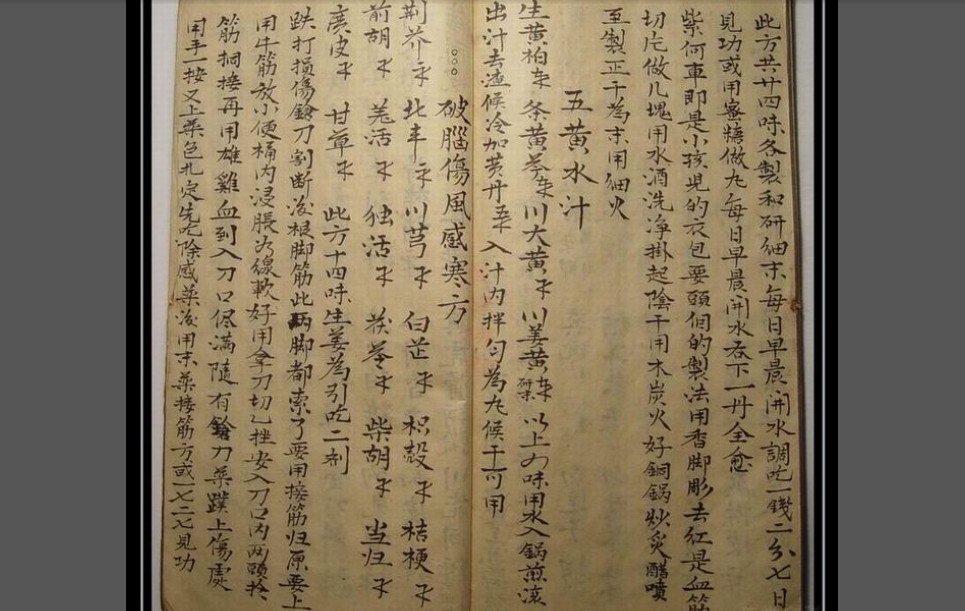 此方共廿四味各製和研細末每日早晨開水調吃一錢二分七日
見功或用蜜糖做丸每日早晨開水吞下一丹全愈
紫何車即是小孩兒的衣包要頭個的製法用香脚彫去紅是血筋
切片做几塊用水酒洗净掛起陰干用木炭火好銅锅炒炙醋噴
至製正干為末用細火
五黄水汁
生黄柏 条黄芩 川大黄 川姜黄 以上四味用水入锅煎滚
出汁去渣候冷加黄丹 入汁内拌匀為丸候干可用
破腦傷風感寒方
荆芥 北丰 川芎 白芷 枳殼 桔梗
前胡 羌活 独活 茯苓 柴胡 当归
廣皮 甘草 此方十四味生姜為引吃二剂
跌打損傷鎗刀割断後根脚筋此两脚都索了要用接筋归原要上
用牛筋放小便桶内浸脹為線軟好用拿刀切 挫安入刀口内两頭
筋 接再用雄雞血到入刀口伱满隨有鎗刀藥 上傷處
用手一按又上藥色扎定先吃除感藥後用末藥接筋方或一七二七見功